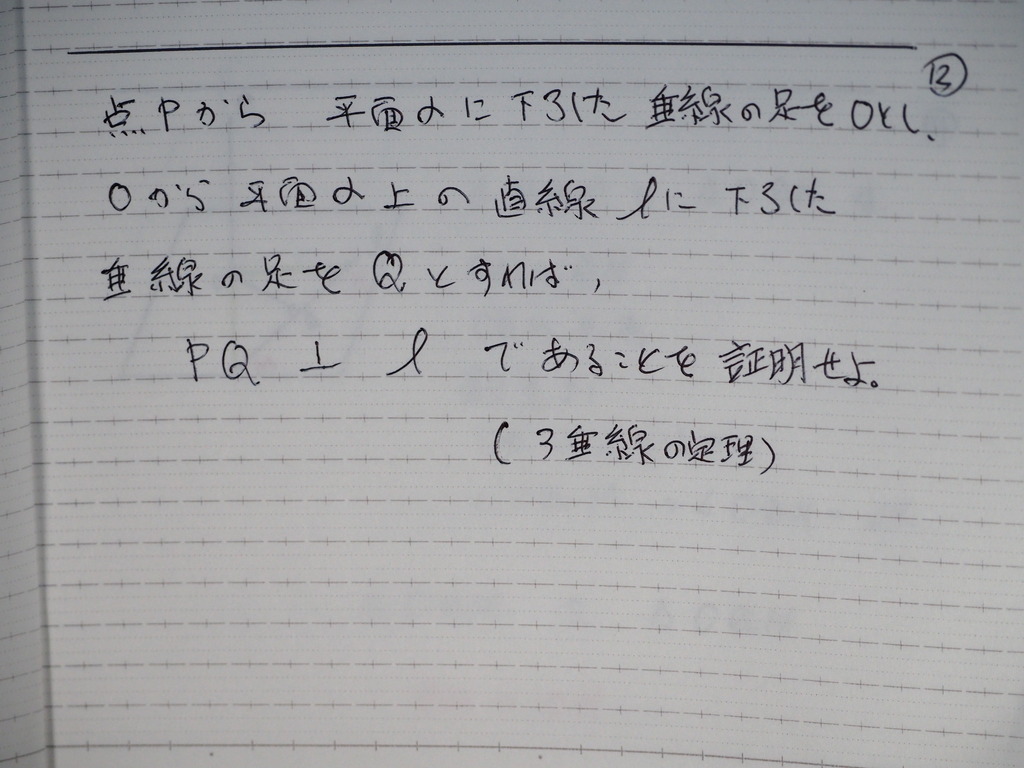 ⑬
点Pから 平面αに下ろした垂線の足をOとし、
Oから平面α上の直線lに下ろした
垂線の足をQとすれば,
PQ ⊥ l であることを証明せよ。
(3垂線の定理)